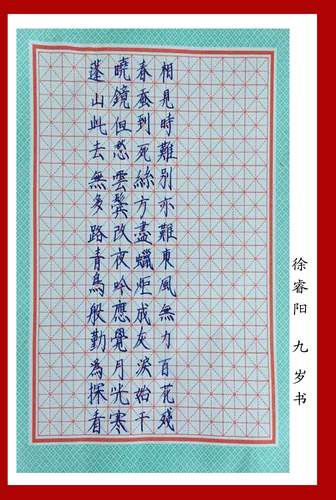 相見時難別亦難東風無力百花残
春蚕到死絲方盡蠟炬成灰淚始干
曉鏡但愁雲鬢改夜吟應覺月光寒
蓬山此去無多路青鳥殷勤為探看
徐睿阳 九岁书